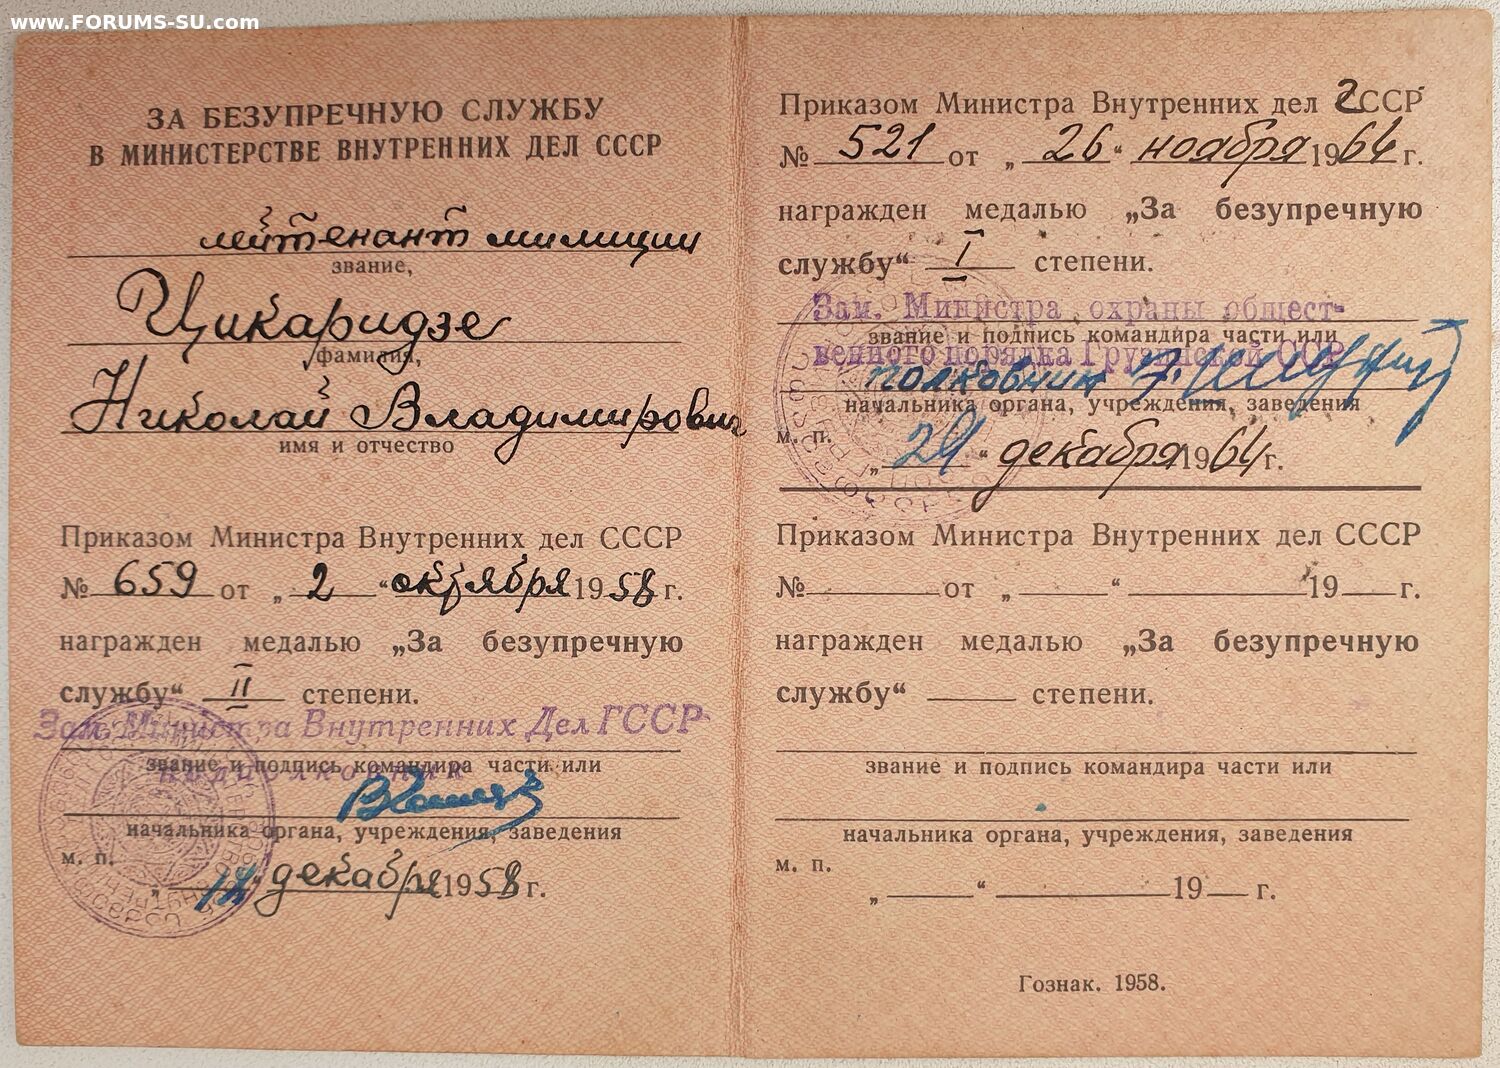 www.FORUMS-SU.com
ЗА БЕЗУПРЕЧНУЮ СЛУЖБУ
В МИНИСТЕРСТВЕ ВНУТРЕННИХ ДЕЛ СССР
лейтенант милиции
звание,
Цикаридзе
фамилия,
Николай Владимирович
имя и отчество
Приказом Министра Внутренних дел СССР
№ 659 от „ 2 “ октября 1958 г.
награжден медалью „За безупречную
службу“ II степени.
Зам. Министра Внутренних Дел ГССР
звание и подпись командира части или
подполковник
начальника органа, учреждения, заведения
м. п.
„ “ декабря 1958 г.
Приказом Министра Внутренних дел ГССР
№ 521 от „ 26 “ ноября 1964 г.
награжден медалью „За безупречную
службу“ I степени.
Зам. Министра охраны общест-
звание и подпись командира части или
венного порядка Грузинской ССР
полковник
начальника органа, учреждения, заведения
м. п.
„ “ декабря 1964 г.
Приказом Министра Внутренних дел СССР
№ от „ “ 19 г.
награжден медалью „За безупречную
службу“ степени.
звание и подпись командира части или
начальника органа, учреждения, заведения
м. п.
„ “ 19 г.
Гознак. 1958.